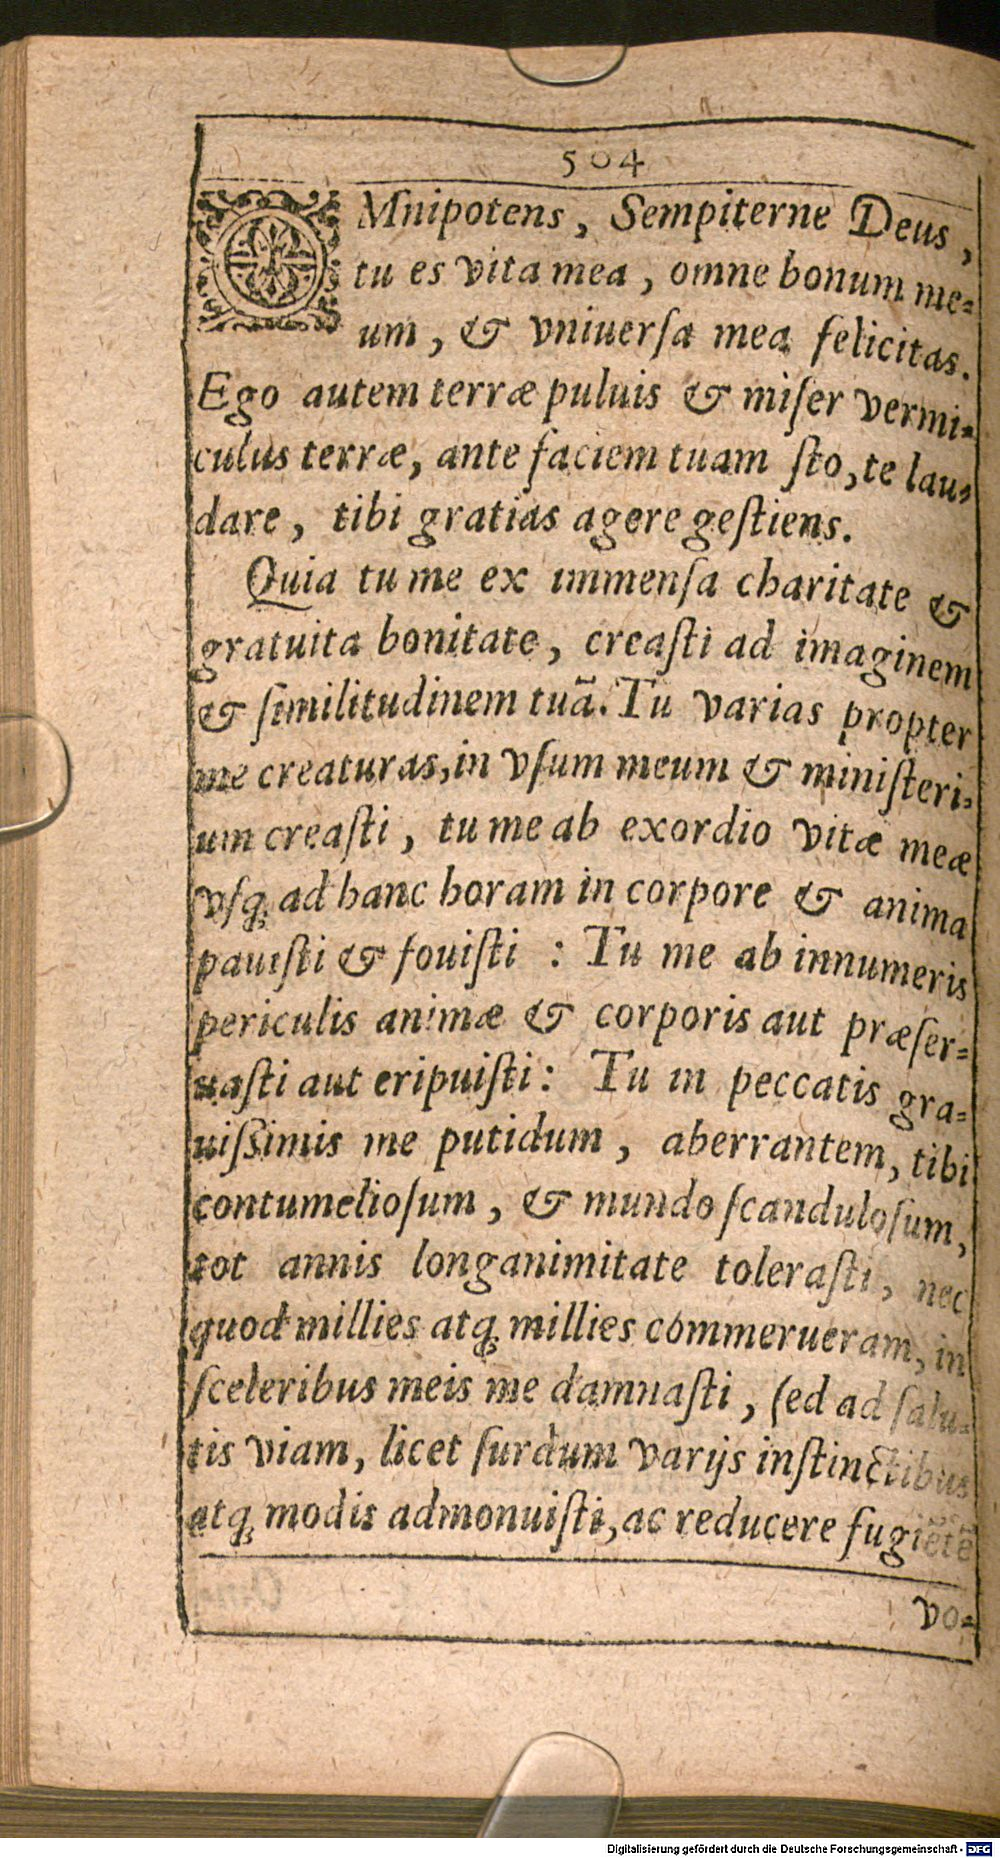 504
OMnipotens, Sempiterne Deus,
tu es vita mea, omne bonum me-
um, & vniuerſa mea felicitas.
Ego autem terræ puluis & miſer vermi-
culus terræ, ante faciem tuam ſto, te lau-
dare, tibi gratias agere geſtiens.
Quia tu me ex immenſa charitate &
gratuita bonitate, creaſti ad imaginem
& ſimilitudinem tuã. Tu varias propter
me creaturas, in vſum meum & miniſteri-
um creaſti, tu me ab exordio vitæ meæ
vſq; ad hanc horam in corpore & anima
pauiſti & fouiſti : Tu me ab innumeris
periculis animæ & corporis aut præſer-
uaſti aut eripuiſti: Tu in peccatis gra-
uiſſimis me putidum, aberrantem, tibi
contumelioſum, & mundo ſcanduloſum,
tot annis longanimitate toleraſti, nec
quod millies atq; millies commerueram, in
ſceleribus meis me damnaſti, ſed ad ſalu-
tis viam, licet ſurdum varijs inſtinctibus
atq; modis admonuiſti, ac reducere fugiẽtẽ
vo-
Digitalisierung gefördert durch die Deutsche Forschungsgemeinschaft - DFG